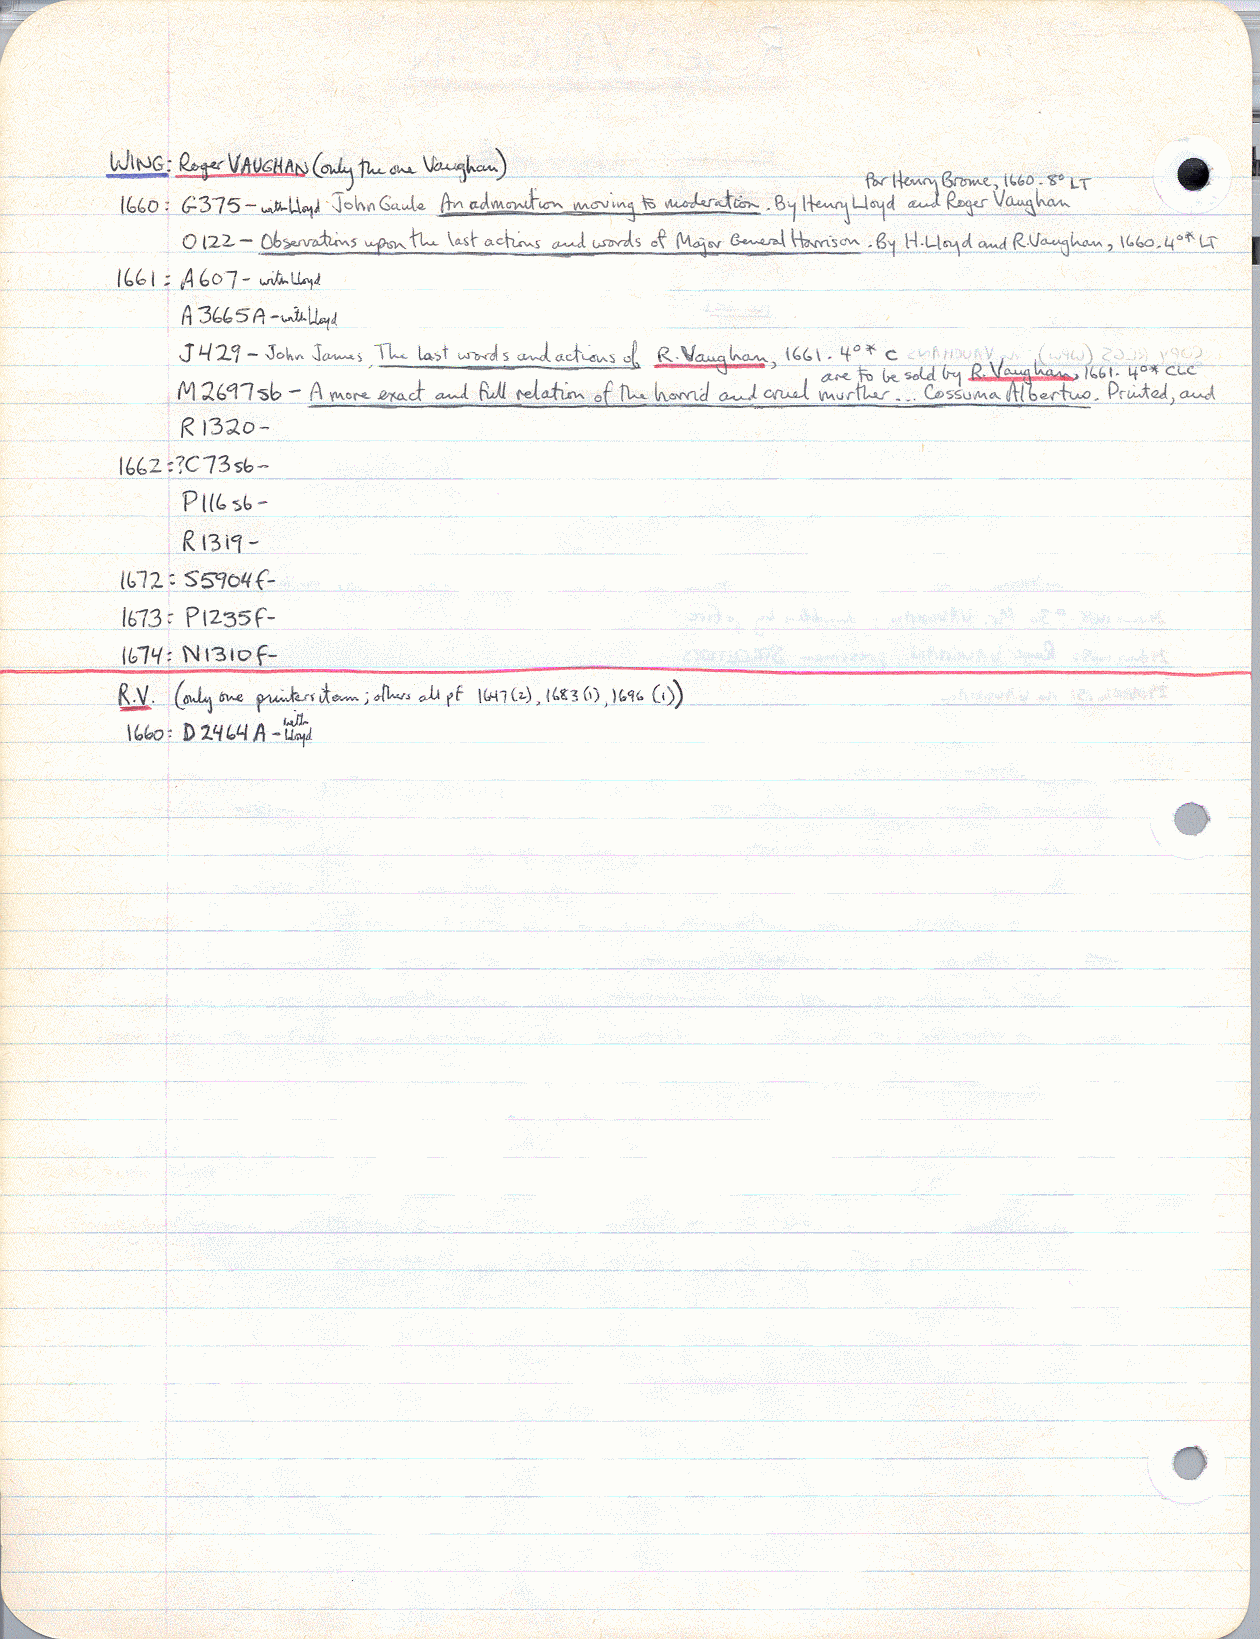 WING: Roger VAUGHAN (only the one Vaughan)
for Henry Brome, 1660. 8° LT
1660: G375 - with Lloyd John Gaule An admonition moving to moderation. By Henry Lloyd and Roger Vaughan
O122 - Observations upon the last actions and words of Major General Harrison. By H. Lloyd and R. Vaughan, 1660. 4°* LT
1661: A607 - with Lloyd
A3665A - with Lloyd
J429 - John James, The last words and actions of R. Vaughan, 1661. 4°* C
are to be sold by R. Vaughan, 1661. 4°* CLC
M2697sb - A more exact and full relation of the horrid and cruel murther... Cossuma Albertus. Printed, and
R1320 -
1662: ?C73sb -
P116sb -
R1319 -
1672: S5904f -
1673: P1235f -
1674: N1310f -
R.V. (only one printers item; others all pf 1647 (2), 1683 (1), 1696 (1))
1660: D2464A - with Lloyd